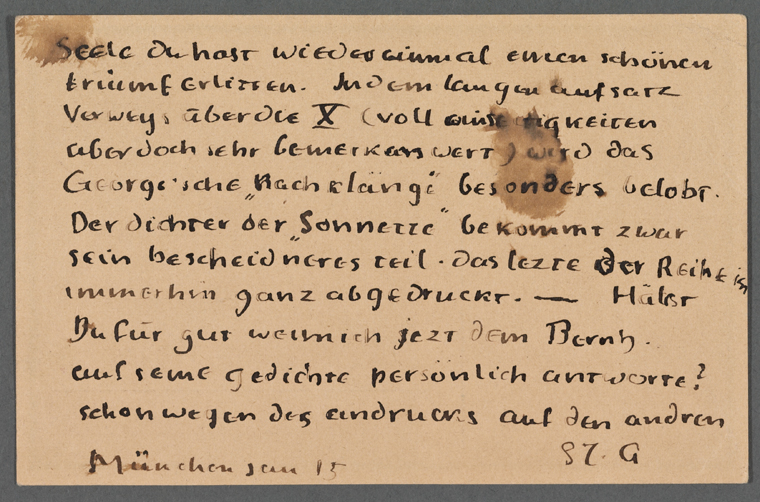 Seele du hast wieder einmal einen schönen
triumf erlitten. In dem langen aufsatz
Verweys über die X (voll einseitigkeiten
aber doch sehr bemerkenswert) wird das
George'sche „Nachklänge“ besonders belobt.
Der dichter der „Sonnette“ bekommt zwar
sein bescheidneres teil. das lezte der Reihe ist
immerhin ganz abgedruckt. — Hälst
Du für gut wenn ich jezt dem Bernh.
auf seine gedichte persönlich antworte?
schon wegen des eindrucks auf den andren
ST. G
München jan 15